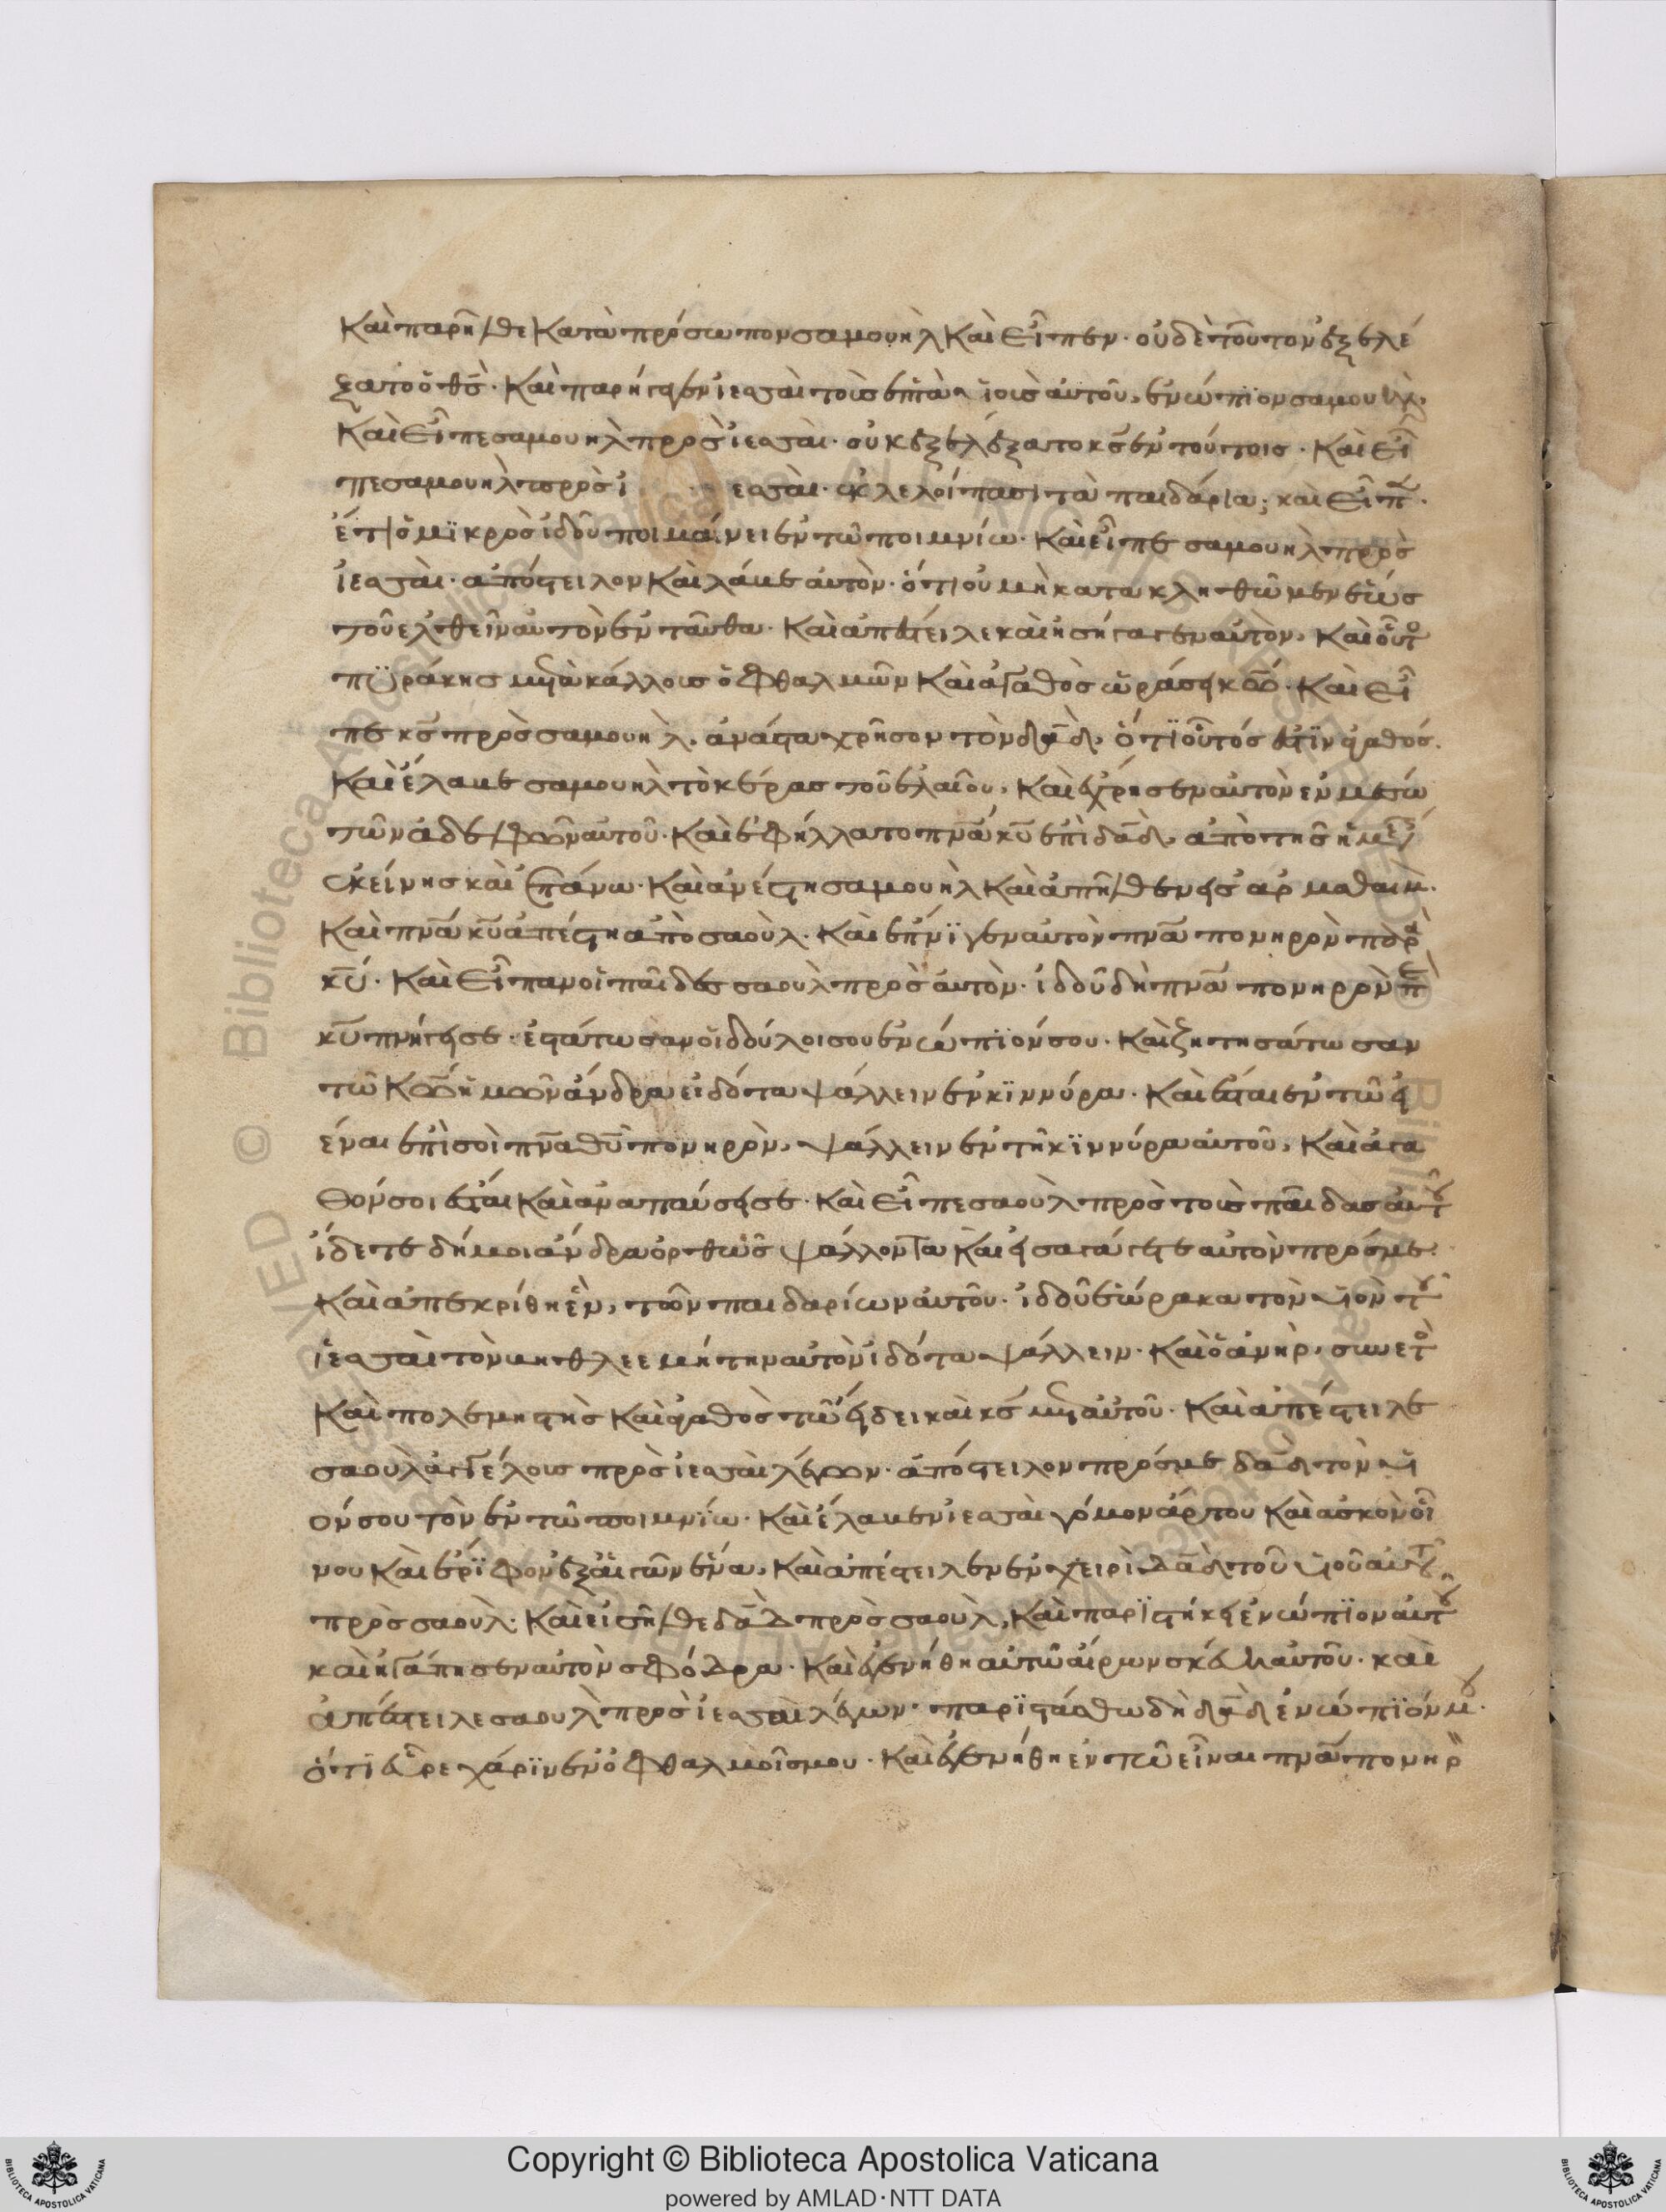 Καὶ παρῆλθε κατὰ πρόσωπον σαμουὴλ καὶ εἶπεν· οὐδὲ τοῦτον ἐξελέ
ξατο ὁ θς̅· καὶ παρήγαγεν ἰεσσαὶ τοὺς ἑπτὰ υἱοὺς αὐτοῦ, ἐνώπϊον σαμουὴλ,
καὶ εἶπε σαμουὴλ πρὸς ἰεσσαὶ· οὐκ ἐξελέξατο κς̅ ἐν τούτοις· καὶ εἶ
πε σαμουὴλ πρὸς ἰ εσσαὶ· ἐκλελοίπασι τὰ παιδάρια; καὶ εἶπ̅·
ἔτι ὁ μϊκρὸς ἰδοῦ ποιμαίνει ἐν τῶ ποιμνίω· καὶ εἶπε σαμουὴλ πρὸς
ἰεσσαὶ· ἀπόστειλον καὶ λάβε αὐτὸν· ὅτι οὐ μὴ κατακληθῶμεν ἕως
τοῦ ἐλθεῖν αὐτὸν ἐνταῦθα· καὶ ἀπέστειλε καὶ εἰσήγαγεν αὐτὸν, καὶ οὗτο
πϋράκης μετὰ κάλλους ὀφθαλμῶν καὶ ἀγαθὸς ὡράσει κω̅· καὶ εἶ
πε κς̅ πρὸς σαμουὴλ, ἀνάστα χρῆσον τὸν δαδ̅, ὅτϊ οὗτός ἐστϊν ἀγαθός.
καὶ ἔλαβε σαμουὴλ τὸ κέρας τοῦ ἐλαίου, καὶ ἔχρησεν αὐτὸν ἐν μέσω
τῶν ἀδελφῶν αὐτοῦ· καὶ ἐφήλλατο πνα̅ κυ̅ ἐπὶ δαδ̅, ἀπὸ τῆς ἡμέρ
ἐκείνης καὶ ἐπάνω· καὶ ἀνέστη σαμουὴλ καὶ ἀπῆλθεν εἰς ἀρμαθαὶμ.
καὶ πνα̅ κυ̅ ἀπέστη ἀπὸ σαοὺλ· καὶ ἔπνϊγεν αὐτὸν πνα̅ πονηρὸν παρὰ
κυ̅· καὶ εἶπαν οἱ παῖδες σαοὺλ πρὸς αὐτὸν· ἰδοῦ δὴ πνα̅ πονηρὸν π
κυ̅ πνήγει σε· εἰπάτωσαν οἱ δούλοι σου ἐνώπϊόν σου· καὶ ζητησάτωσαν
τῶ κω̅ ἡμῶν ἄνδρα εἰδότα ψάλλειν ἐν κϊννύρα· καὶ ἔσται ἐν τῶ εἰ
έναι ἐπὶ σοὶ πνα̅ θυ̅ πονηρὸν, ψάλλειν ἐν τῆ κϊννύρα αὐτοῦ, καὶ ἀγα
θόν σοι ἔσται καὶ ἀναπαύσει σε· καὶ εἶπε σαοὺλ πρὸς τοὺς παῖδας αὐτοῦ
ἴδετε δή μοι ἄνδρα ὀρθῶς ψάλλοντα καὶ εἰσαγάγετε αὐτὸν πρός με·
καὶ ἀπεκρίθη ἓν, τῶν παιδαρίων αὐτοῦ· ἰδοῦ ἑώρακα τὸν υἱὸν τοῦ
ἰεσσαὶ τὸν βηθλεεμήτην αὐτὸν ἰδότα ψάλλειν· καὶ ὁ ἀνὴρ, συνετὸ
καὶ πολεμηστὴς καὶ ἀγαθὸς τῶ εἴδει καὶ κς̅ μετ αὐτοῦ· καὶ ἀπέστειλε
σαοὺλ ἀγγέλους πρὸς ἰεσσαὶ λέγων· ἀπόστειλον πρός με δαδ̅ τὸν υἱ
όν σου τὸν ἐν τῶ ποιμνίω· καὶ ἔλαβεν ἰεσσαὶ γόμον ἄρτου καὶ ἀσκὸν οἴ
νου καὶ ἔρϊφον ἐξ αἰγῶν ἕνα, καὶ ἀπέστειλεν ἐν χειρὶ δαδ̅ τοῦ υἱοῦ αὐτοῦ
πρὸς σαοὺλ· καὶ εἰσῆλθε δαδ̅ πρὸς σαοὺλ, καὶ παρϊστήκει ἐνώπϊον αὐτοῦ
καὶ ἠγάπησεν αὐτὸν σφόδρα· καὶ ἐγενήθη αὐτῶ αἴρων σκεύη αὐτοῦ· καὶ
ἀπέστειλε σαοὺλ πρὸς ἰεσσαὶ λέγων· παρϊστάσθω δὴ δαδ̅ ἐνώπϊόν μου·
ὅτϊ εὗρε χάρϊν ἐν ὀφθαλμοῖς μου· καὶ ἐγενήθη ἐν τῶ εἶναι πνα̅ πονηρὸ
Copyright © Biblioteca Apostolica Vaticana
powered by AMLAD·NTT DATA